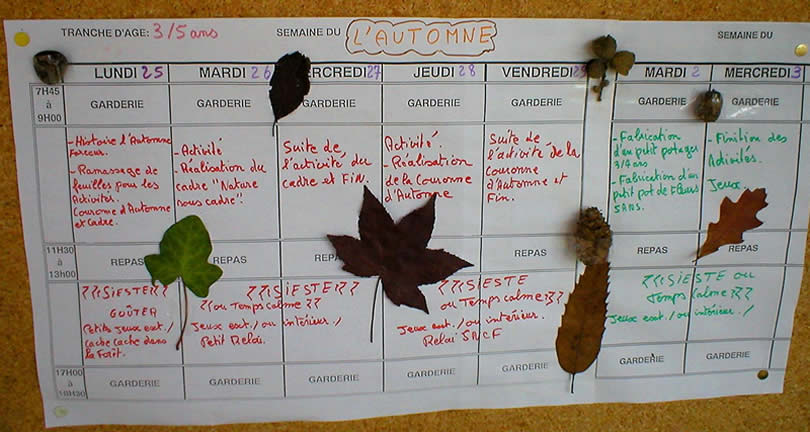 TRANCHE D'AGE: 3/5 ans SEMAINE DU L'AUTOMNE SEMAINE DU
LUNDI 25 MARDI 26 MERCREDI 27 JEUDI 28 VENDREDI 29 MARDI 2 MERCREDI 3
7H45
à
9H00
GARDERIE GARDERIE GARDERIE GARDERIE GARDERIE GARDERIE GARDERIE
- Histoire l'Automne
- Ramassage de
feuilles pour les
Activités.
Couronne d'Automne
et Cadre.
- Activité
- Réalisation du
cadre "Nature
sous cadre".
Suite de
l'activité du
cadre et Fin.
Activité.
- Réalisation
de la Couronne
d'Automne
Suite de
l'activité de la
Couronne
d'Automne et
Fin.
- Fabrication
d'un petit potager
3/4 ans
- Fabrication d'un
petit pot de Fleurs
5 ANS.
- Finition des
Activités.
Jeux.
11H30
à
13H00
REPAS REPAS REPAS REPAS REPAS REPAS REPAS
???SIESTE???
GOÛTER
Petits Jeux ext./
cache cache dans
la Forêt.
???SIESTE???
ou Temps calme ???
Jeux ext./ou intérieur./
Petit Relai.
???SIESTE
ou Temps calme???
Jeux ext./ou intérieur.
Relai SNCF
???SIESTE ou
Temps calme???
Jeux ext./ou intérieur./
17H00
à
18H30
GARDERIE GARDERIE GARDERIE GARDERIE GARDERIE GARDERIE GARDERIE